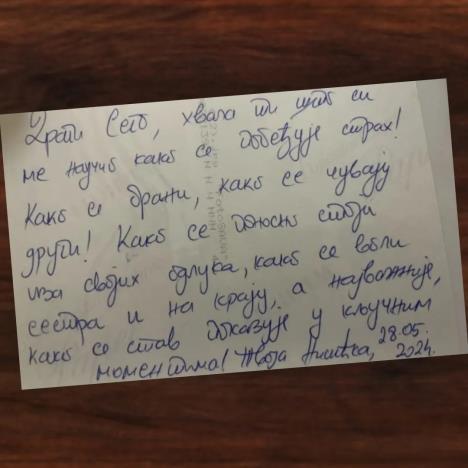 Драги Сето, хвала ти што си
ме научио како се побеђује страх!
Како се брани, како се чувају
други! Како се поносно стоји
иза својих одлука, како се воли
сестра и на крају, а најважније,
како се став показује у кључним
моментима! Твоја 28.05.
2024.